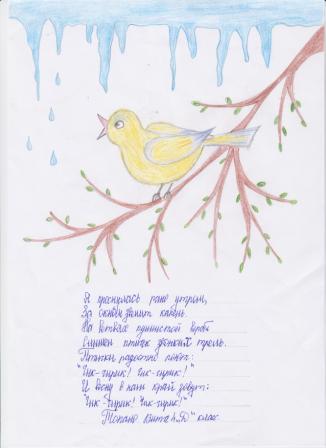 Я проснулась рано утром,
За окном звенит капель.
На ветвях пушистой вербы
Слышен птичек звонких трель.
Птички радостно поют:
"Чик-чирик! Чик-чирик!"
И весну в наш край зовут:
"Чик-чирик! Чик-чирик!
4 "Д" класс.